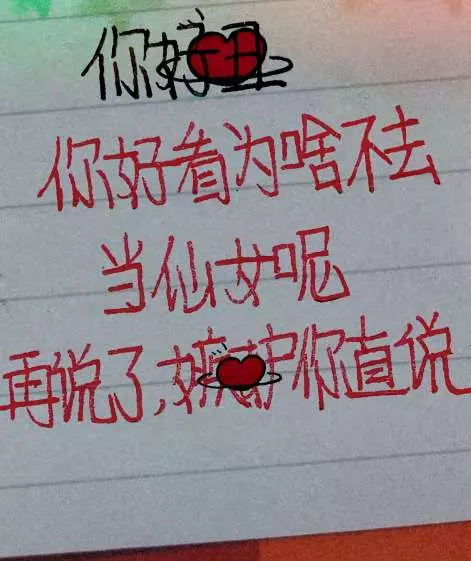 你好丑
你好看为啥不去
当仙女呢
再说了,嫉妒你直说